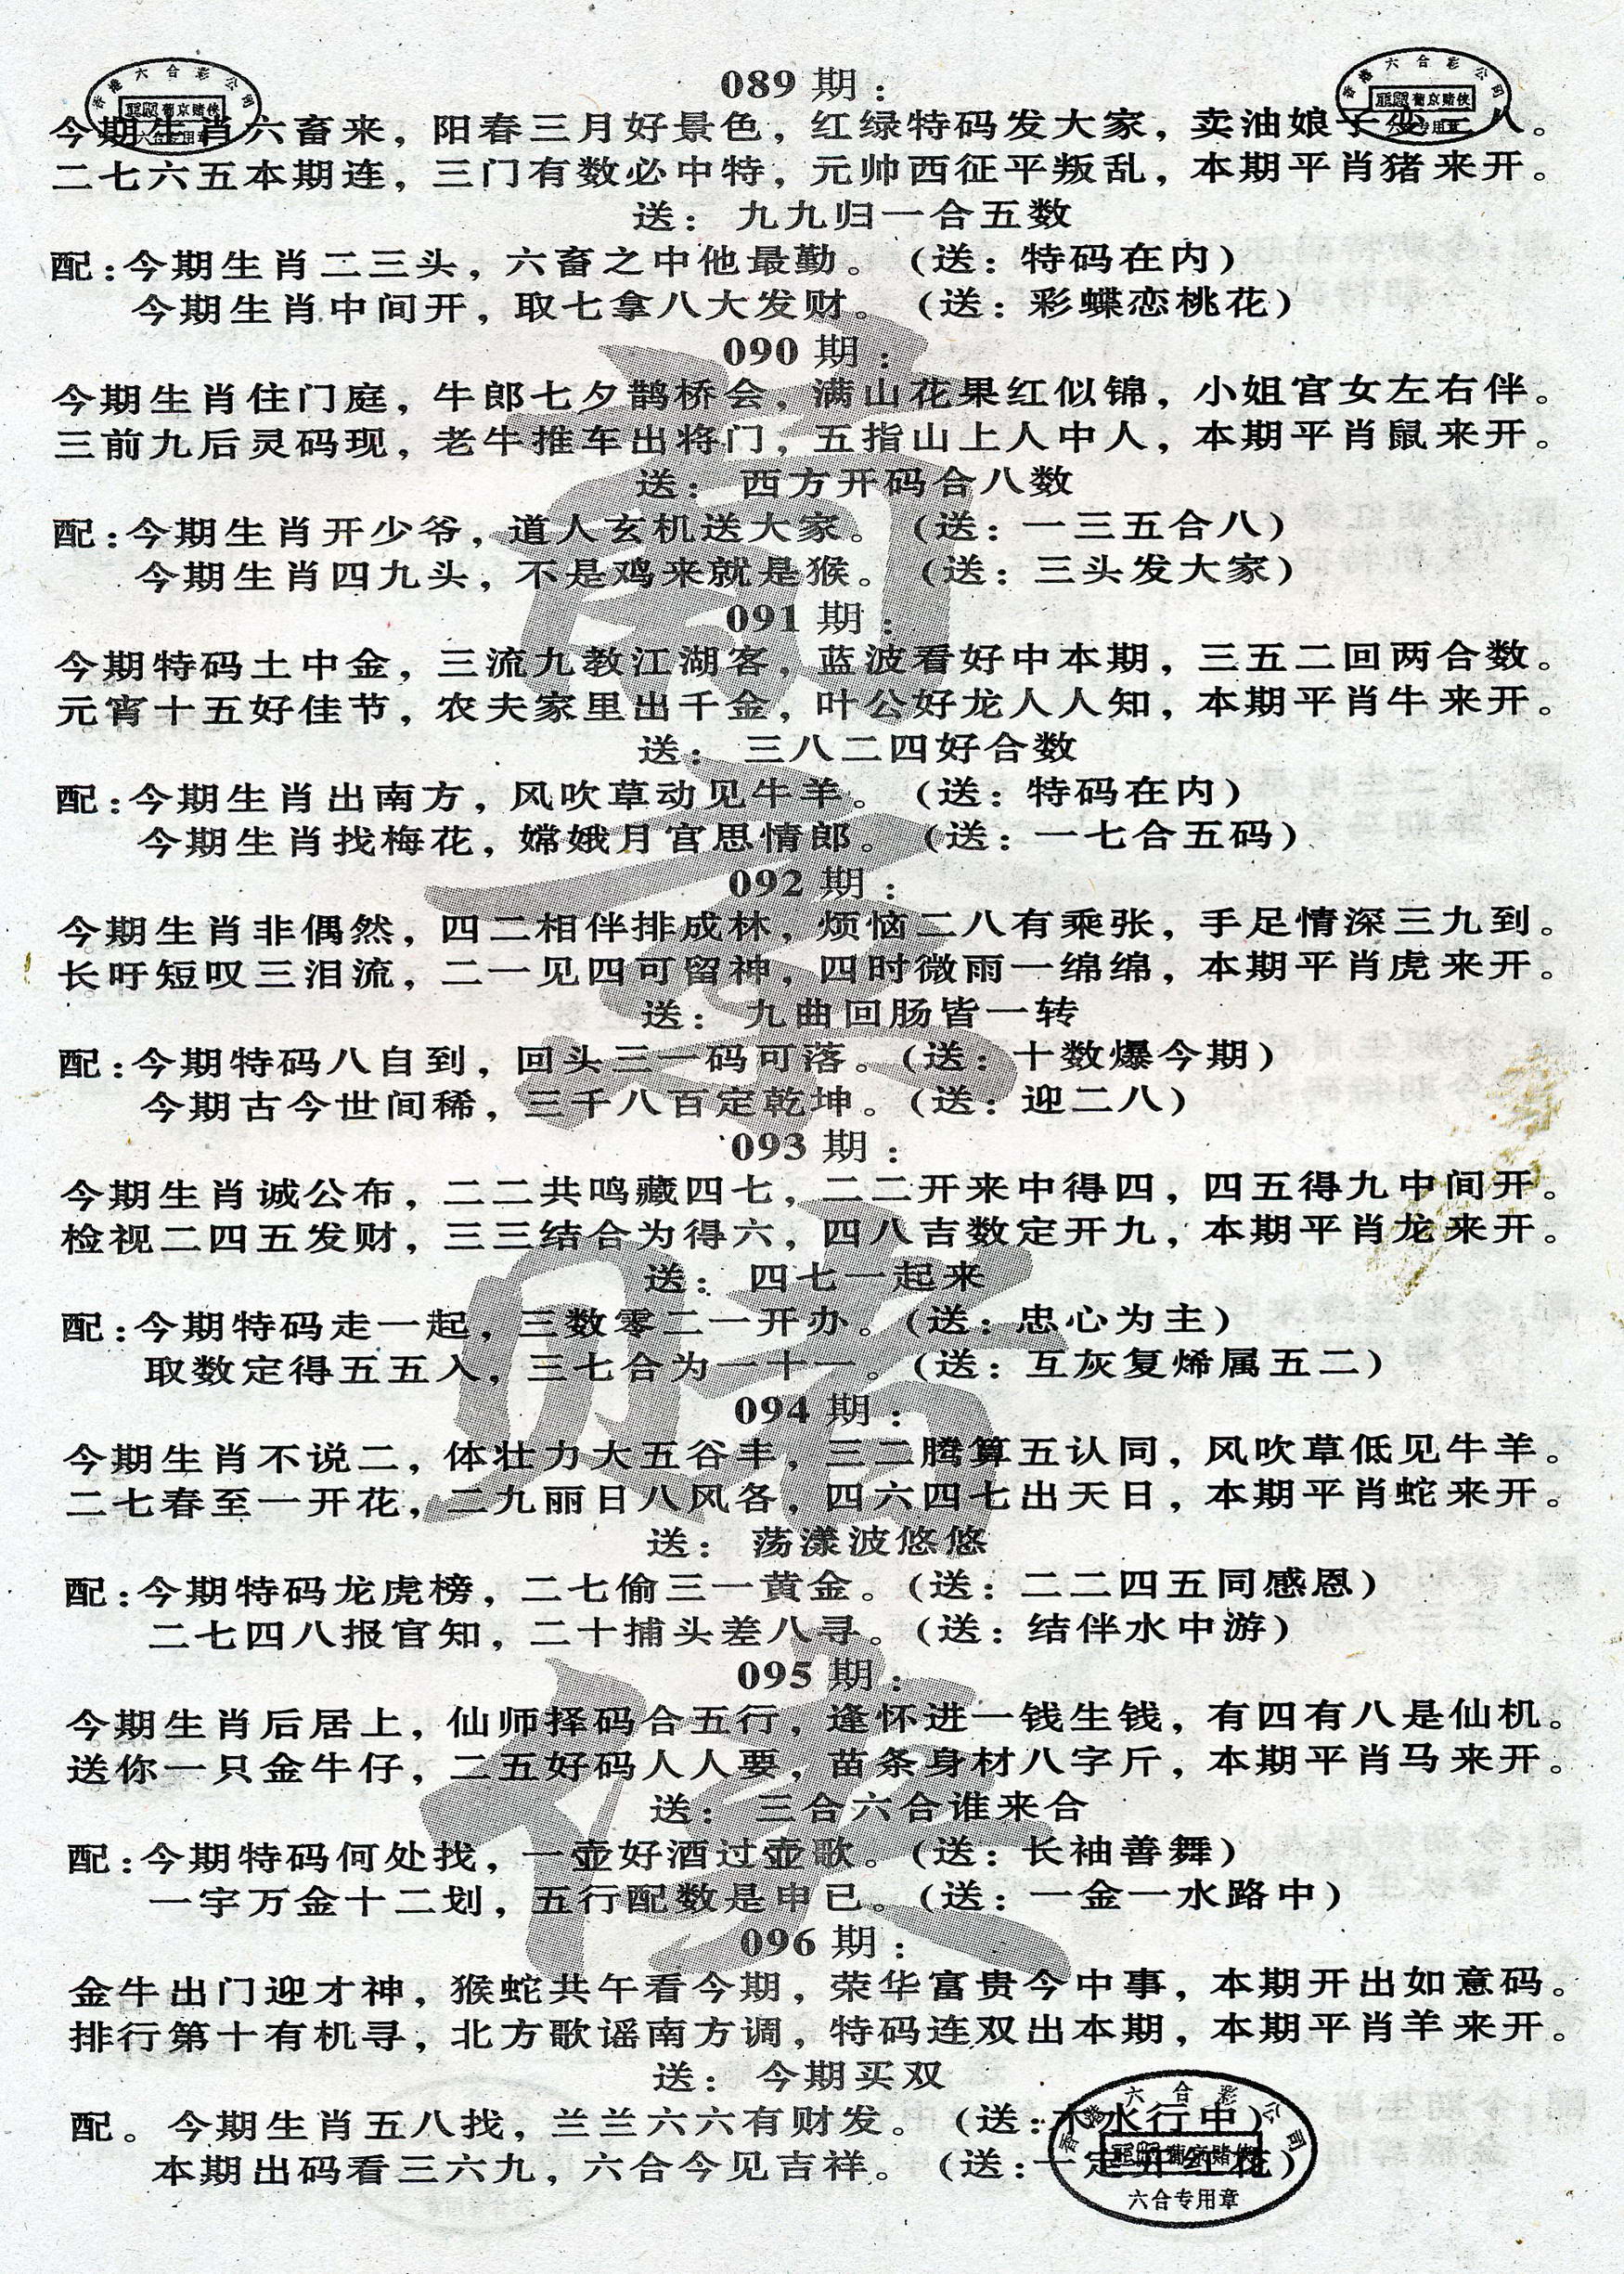 香港六合彩公司
葡京赌侠
六合专用章
香港六合彩公司
葡京赌侠
六合专用章
089期：
今期生肖六畜来，阳春三月好景色，红绿特码发大家，卖油娘子恋主人。
二七六五本期连，三门有数必中特，元帅西征平叛乱，本期平肖猪来开。
送：九九归一合五数
配：今期生肖二三头，六畜之中他最勤。（送：特码在内）
今期生肖中间开，取七拿八大发财。（送：彩蝶恋桃花）
090期：
今期生肖住门庭，牛郎七夕鹊桥会，满山花果红似锦，小姐官女左右伴。
三前九后灵码现，老牛推车出将门，五指山上人中人，本期平肖鼠来开。
送：西方开码合八数
配：今期生肖开少爷，道人玄机送大家。（送：一三五合八）
今期生肖四九头，不是鸡来就是猴。（送：三头发大家）
091期：
今期特码土中金，三流九教江湖客，蓝波看好中本期，三五二回两合数。
元宵十五好佳节，农夫家里出千金，叶公好龙人人知，本期平肖牛来开。
送：三八二四好合数
配：今期生肖出南方，风吹草动见牛羊。（送：特码在内）
今期生肖找梅花，嫦娥月宫思情郎。（送：一七合五码）
092期：
今期生肖非偶然，四二相伴排成林，烦恼二八有乘张，手足情深三九到。
长吁短叹三泪流，二一见四可留神，四时微雨一绵绵，本期平肖虎来开。
送：九曲回肠皆一转
配：今期特码八自到，回头三一码可落。（送：十数爆今期）
今期古今世间稀，三千八百定乾坤。（送：迎二八）
093期：
今期生肖诚公布，二二共鸣藏四七，二二开来中得四，四五得九中间开。
检视二四五发财，三三结合为得六，四八吉数定开九，本期平肖龙来开。
送：四七一起来
配：今期特码走一起，三数零二一开办。（送：忠心为主）
取数定得五五入，三七合为一十一。（送：互灰复烯属五二）
094期：
今期生肖不说二，体壮力大五谷丰，三二腾算五认同，风吹草低见牛羊。
二七春至一开花，二九丽日八风各，四六四七出天日，本期平肖蛇来开。
送：荡漾波悠悠
配：今期特码龙虎榜，二七偷三一黄金。（送：二二四五同感恩）
二七四八报官知，二十捕头差八寻。（送：结伴水中游）
095期：
今期生肖后居上，仙师择码合五行，逢怀进一钱生钱，有四有八是仙机。
送你一只金牛仔，二五好码人人要，苗条身材八字斤，本期平肖马来开。
送：三合六合谁来合
配：今期特码何处找，一壶好酒过壶歌。（送：长袖善舞）
一宇万金十二划，五行配数是申已。（送：一金一水路中）
096期：
金牛出门迎才神，猴蛇共午看今期，荣华富贵今中事，本期开出如意码。
排行第十有机寻，北方歌谣南方调，特码连双出本期，本期平肖羊来开。
送：今期买双
配。今期生肖五八找，兰兰六六有财发。（送：木水行中）
本期出码看三六九，六合今见吉祥。（送：一定开红花）
香港六合彩公司
葡京赌侠
六合专用章